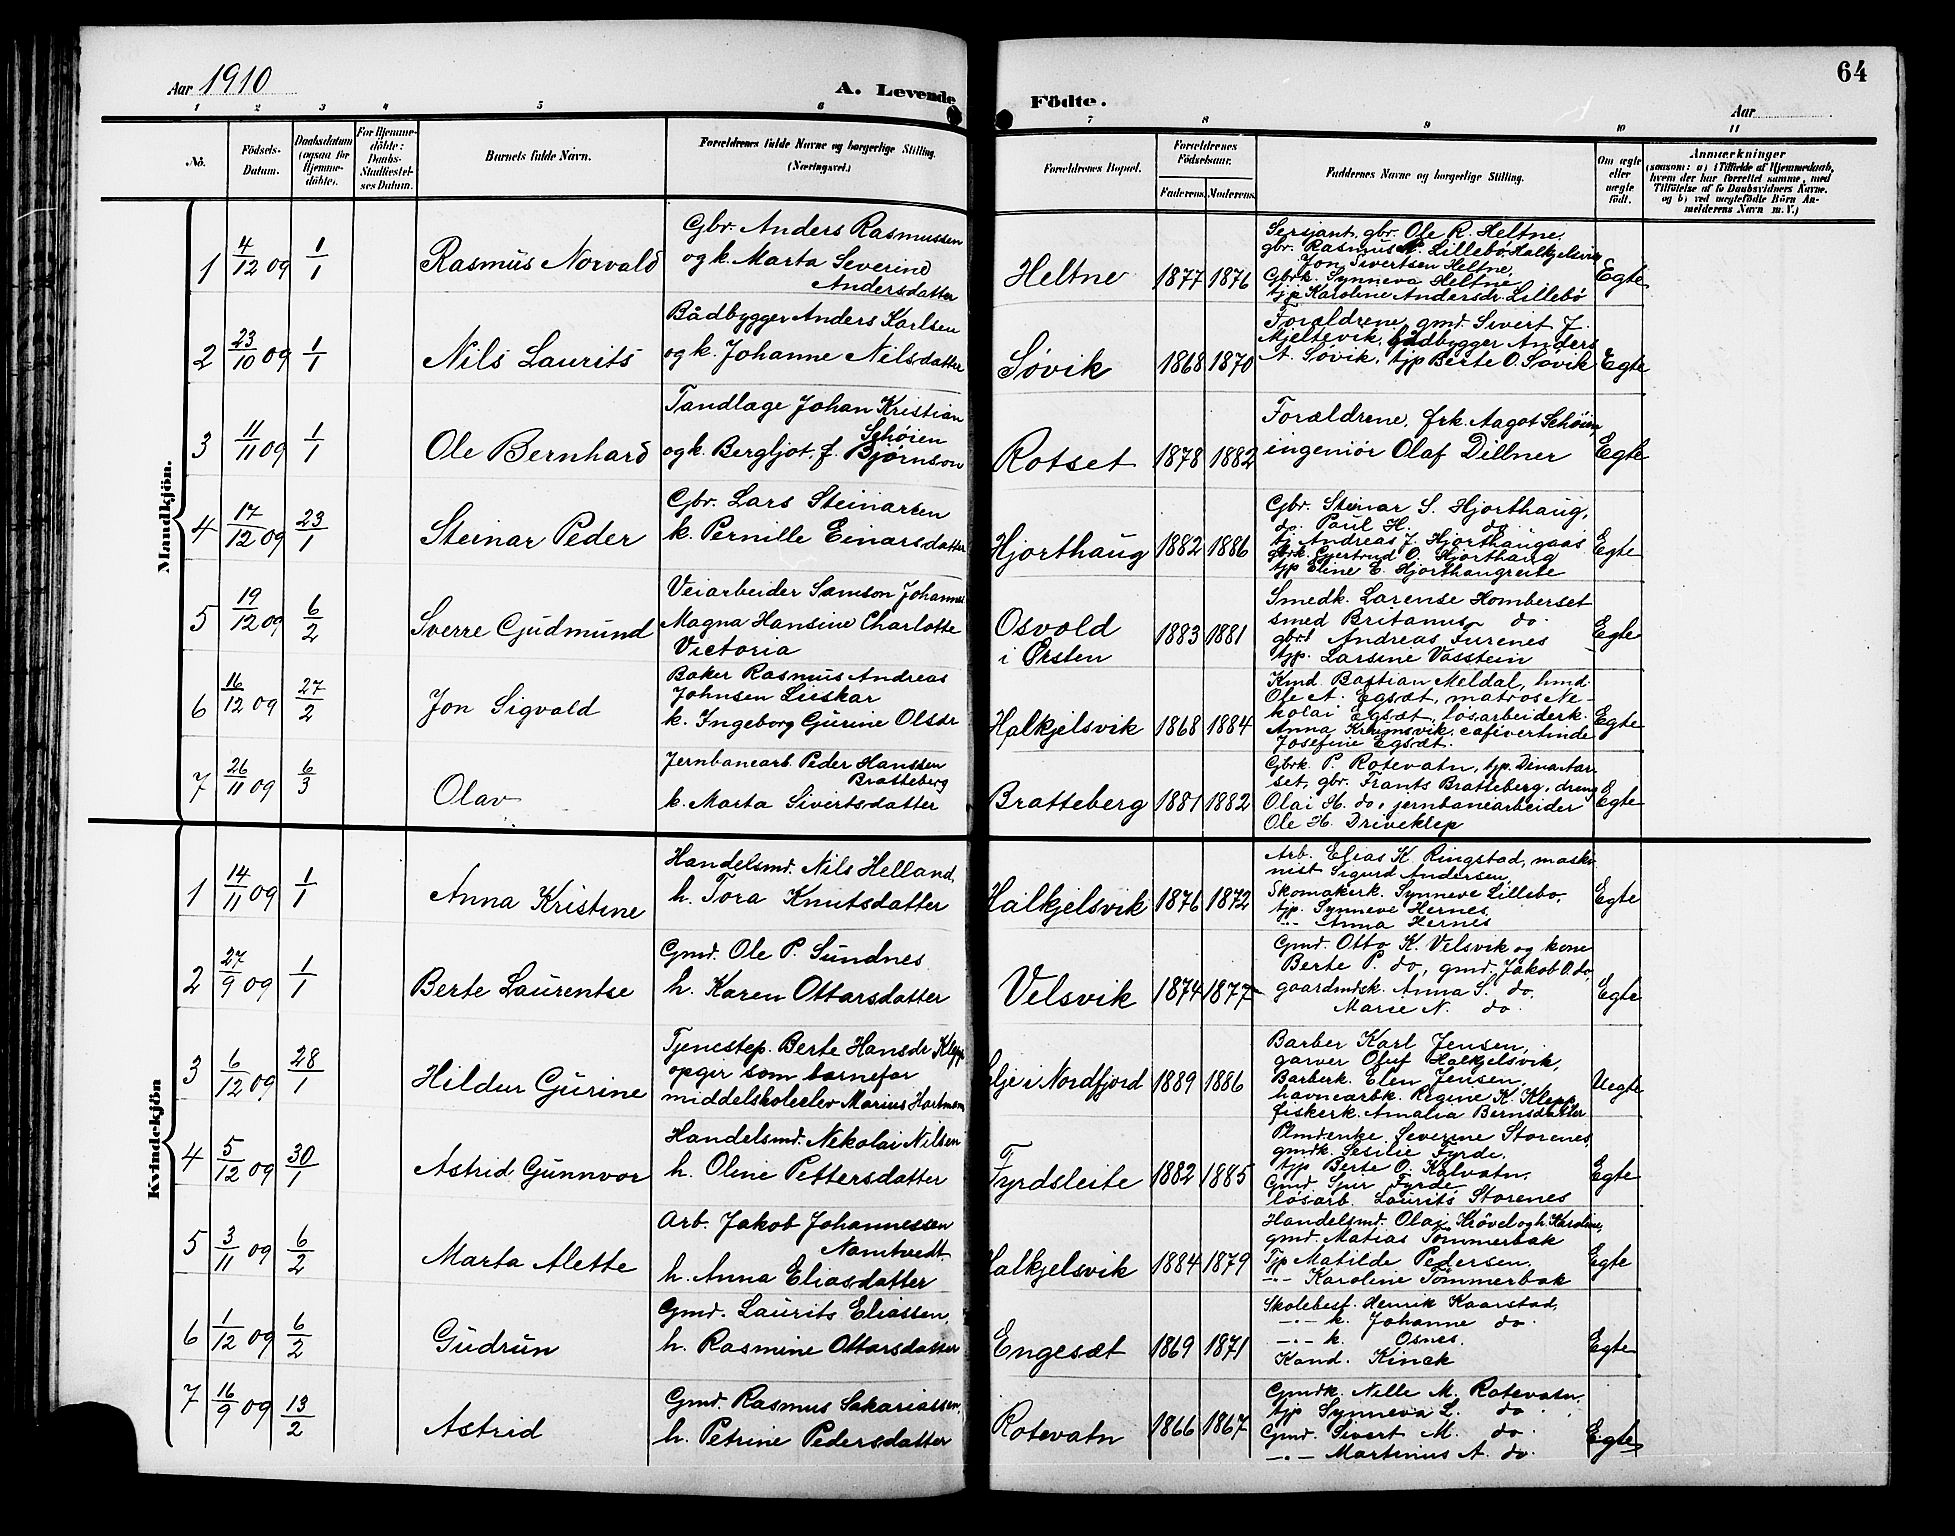 Aar 1910
A. Levende
Födte.
64
Aar
1 2 3 4 5 6 7 8 9 10 11
No.
Födsels-
Datum.
Daabsdatum
(ogsaa for
Hjemme-
döbte).
For Hjemme-
döbte:
Daabs-
Stadfæstel-
ses Datum.
Barnets fulde Navn.
Forældrenes fulde Navne og borgerlige Stilling.
(Næringsvei.)
Forældrenes Bopæl.
Forældrenes
Födselsaar.
Faderens. Moderens.
Faddernes Navne og borgerlige Stilling.
Om ægte
eller
uægte
födt.
Anmærkninger
(saasom: a) i Tilfælde af Hjemmedaab,
hvem der har forrettet samme, med
Tilföielse af to Daabsvidners Navne.
og b) ved uægtefödte Börn An-
melderens Navn m. V.)
Mandkjön.
1 4/12 09 1/1
Rasmus Norvald
Gbr. Anders Rasmussen
og k. Marta Severine
Andersdatter
Heltne
1877 1876
Sersjant, gbr. Ole R. Heltne,
gbr. Rasmus N. Lillebø, Halkjelsvik
Jon Sivertsen Heltne,
Gbrk. Synneva Heltne,
tjp Karoline Andersdr. Lillebö
Egte
2 23/10 09 1/1
Nils Laurits
Bådbygger Anders Karlsen
og k. Johanne Nilsdatter
Søvik
1868 1870
Forældrene, gmd. Sivert J.
Mjeltevik, bådbygger Anders
A. Søvik, tjp Berte O. Søvik
Egte
3 11/11 09 1/1
Ole Bernhard
Tandlæge Johan Kristian
Schöien
og k. Bergljot, f. Bjørnson
Rotset
1878 1882
Forældrene, frk. Aagot Schöien,
ingeniör Olaf Dillner
Egte
4 17/12 09 23/1
Steinar Peder
Gbr. Lars Steinarsen
k. Pernille Einarsdatter
Hjorthaug
1882 1886
Gbr. Steinar S. Hjorthaug,
do. Paul H. do
tj. Andreas J. Hjorthaugaas
gbrk. Gjertrud O. Hjorthaug
tjp Eline E. Hjorthaugreite
Egte
5 19/12 09 6/2
Sverre Gudmund
Veiarbeider Samson Johannes
Magna Hansine Charlotte
Victoria
Osvold
i Ørsten
1883 1881
Smedk. Larense Homberset
smed Britanus do.
gbr. Andreas Furenes
tjp. Larsine Vasstein
Egte
6 16/12 09 27/2
Jon Sigvald
Baker Rasmus Andreas
Johnsen Lieskar
k. Ingeborg Gurine Olsdr
Halkjelsvik
1868 1884
Kmd. Bastian Meldal, hmd.
Ole A. Egsæt, matros Ne-
kolai Egsæt, løsarbeiderk.
Anna Krumsvik, cafivertinde
Josefine Egsæt.
Egte
7 26/11 09 6/3
Olav
Jernbanearb. Peder Hanssen
Bratteberg
k. Marta Sivertsdatter
Bratteberg
1881 1882
Gbrk. P. Rotevatn, tjp. Dina Aar-
set, gbr. Frants Bratteberg, dreng
Olai H. do, jernbanearbeider
Ole H. Driveklep
Egte
Kvindekjön
1 14/11 09 1/1
Anna Kristine
Handelsmd. Nils Helland,
h. Tora Knutsdatter
Halkjelsvik
1876 1872
Arb. Elias K. Ringstad, maski-
nist Sigurd Andersen,
Skomakerk. Synneve Lillebo,
tjp. Synneve Hernes
-"- Anna Hernes
Egte
2 27/9 09 1/1
Berte Laurentse
Gmd. Ole P. Sundnes
h. Karen Ottarsdatter
Velsvik
1874 1877
Gmd. Otto K. Velsvik og kone
Berte P. do, gmd. Jakob O. do,
gaardmdsk. Anna S. do.
Marie N. do.
Egte
3 6/12 09 28/1
Hildur Gurine
Tjenestep. Berte Hansdr Klepp
opgir som barnefar
middelskoleelev Marius Hartmann
Selje i Nordfjord
1889 1886
Barber Karl Jensen,
garver Oluf Halkjelsvik,
Barberk. Elen Jensen,
havnearbk. Regine K. Klepp,
fiskerk. Amalia Berntsdatter
Uegte
4 5/12 09 30/1
Astrid Gunnvor
Handelsmd. Nekolai Nilsen
h. Oline Pettersdatter
Fyrdsleite
1882 1885
Plmdenke Severine Storenes,
gmdk. Sesilie Fyrde,
tjp Berte O. Kalvatn,
Gmd Sjur Fyrde,
løsarb. Laurits Storenes
Egte
5 3/11 09 6/2
Marta Alette
Arb. Jakob Johannessen
Namtvedt
h. Anna Eliasdatter
Halkjelsvik
1884 1879
Handelsmd. Olai Krövel og h. Karoline,
gmd. Matias Tömmerbak
Tjp Matilde Pedersen,
-"- Karoline Tömmerbak
Egte
6 1/12 09 6/2
Gudrun
Gmd. Laurits Eliassen,
h. Rasmine Ottarsdatter
Engesæt
1869 1871
Skolebest. Henrik Kaarstad,
-"- k. Johanne do.
-"- k. Osnes.
Kand. Kinck
Egte
7 16/9 09 13/2
Astrid
Gmd. Rasmus Sakariassen,
h. Petrine Pedersdatter
Rotevatn
1866 1867
Gmdk. Nille M. Rotevatn,
tjp Synneva L. do.
Gmd. Sivert M. do.
-"- Martinus A. do.
Egte